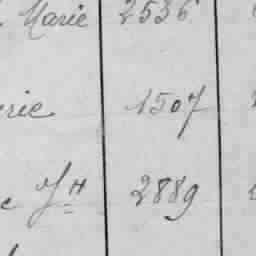 Marie 2536
rie 1507
Jh 2889